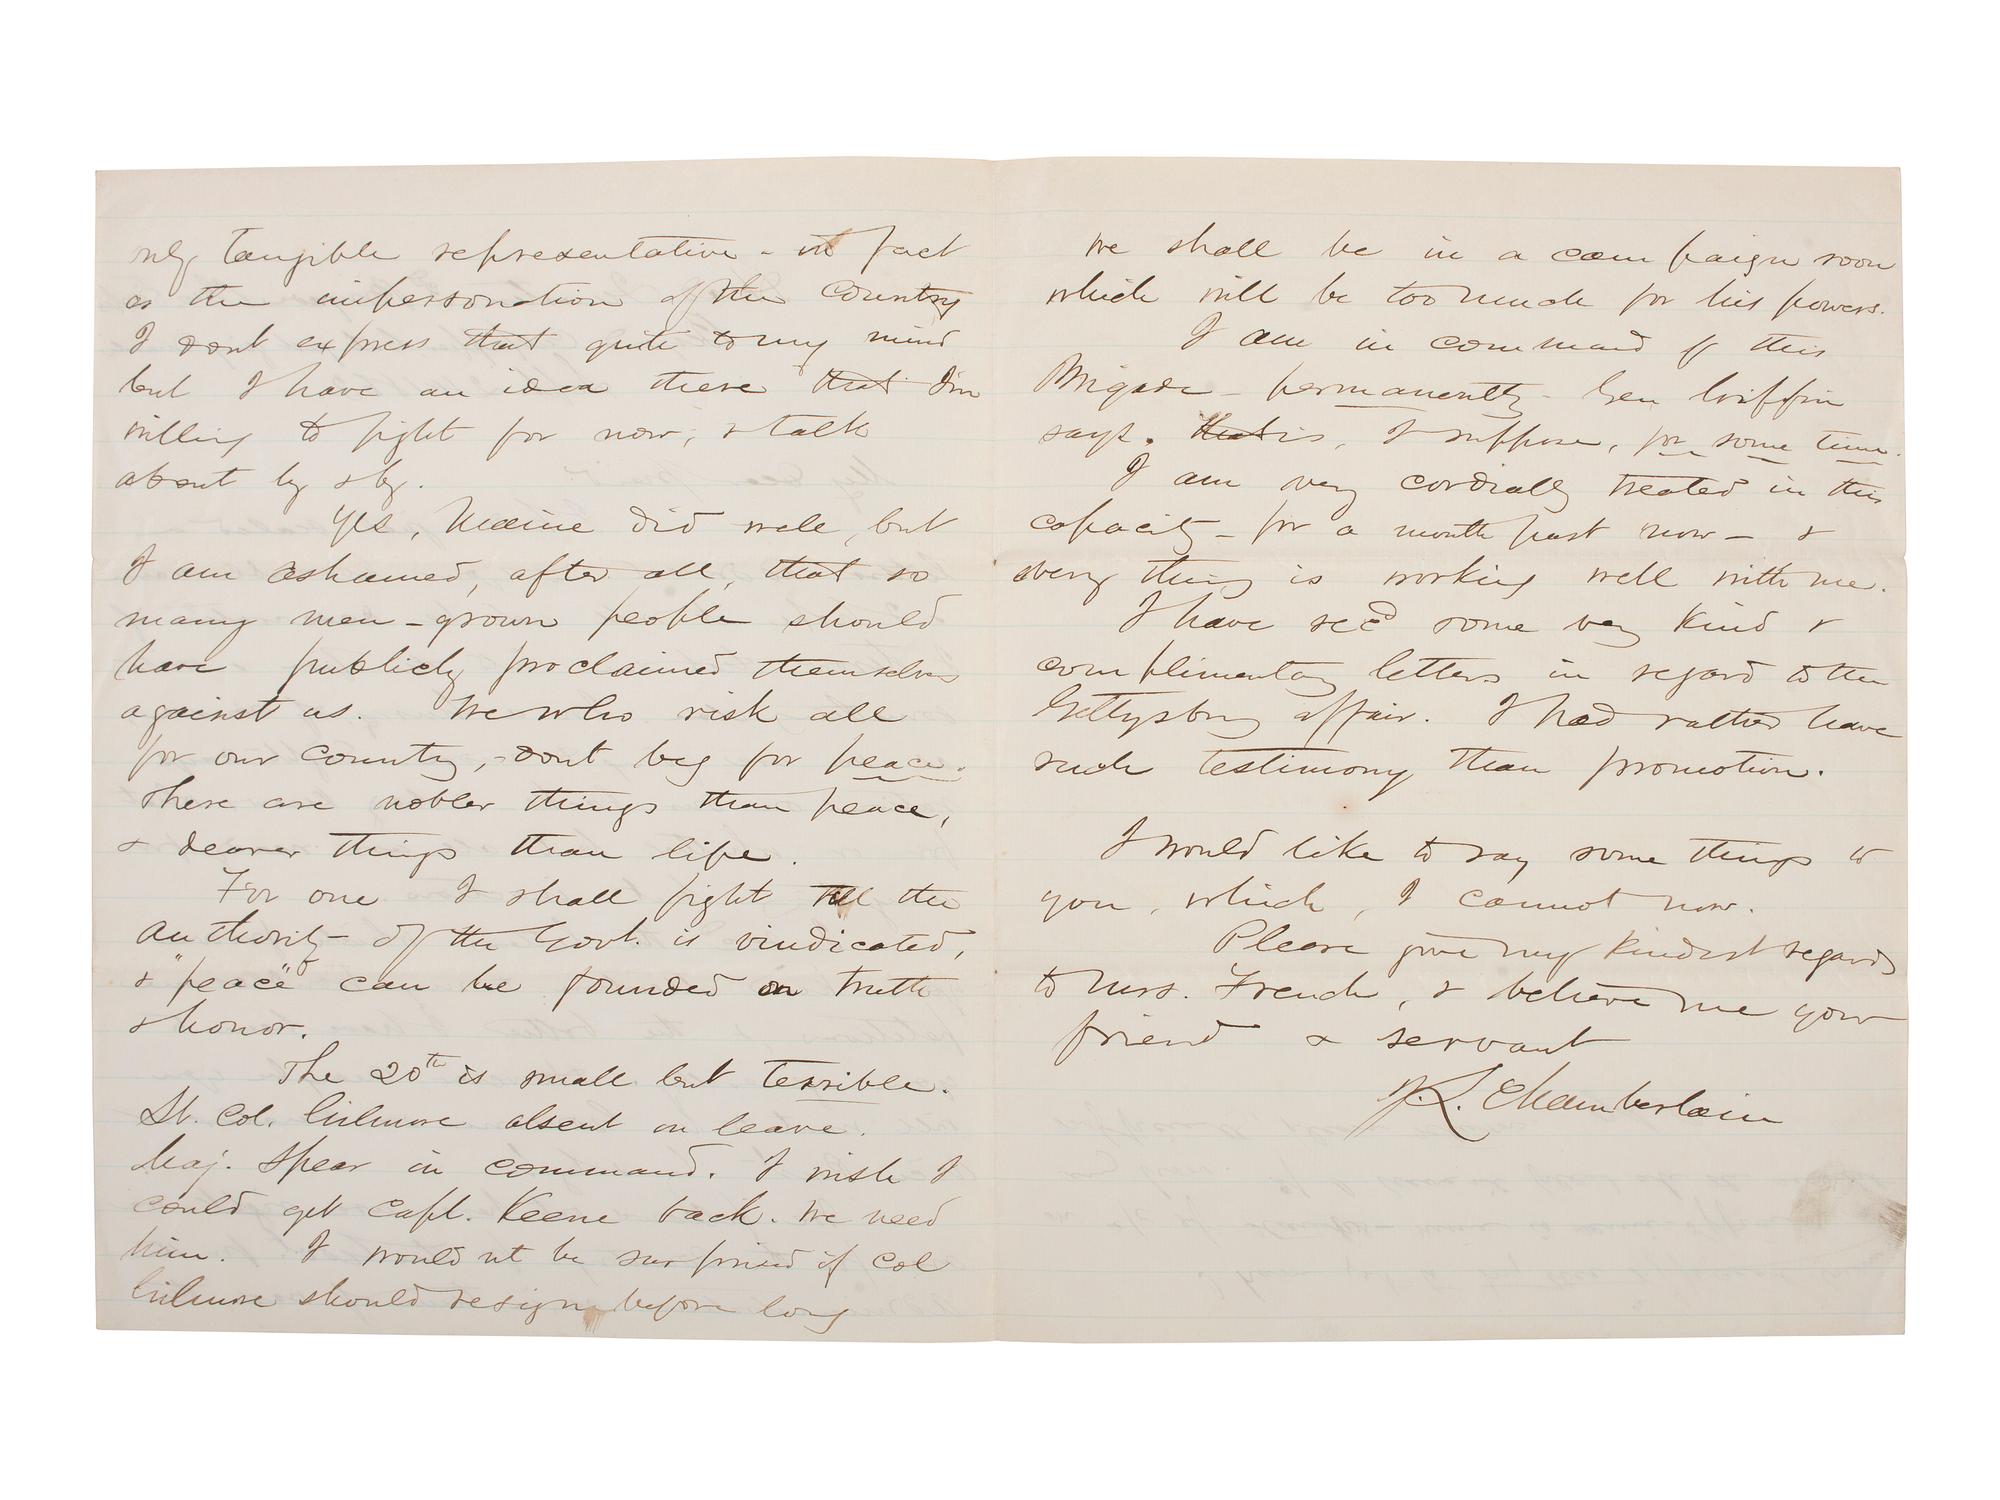 only tangible representative - in fact
as the impersonation of the Country
I dont express that quite to my mind
but I have an idea there that I'm
willing to fight for now; & talk
about by & by.
Yes, Maine did well, but
I am ashamed, after all, that so
many men - grown people should
have publicly proclaimed themselves
against us. We who risk all
for our country, - dont beg for peace.
There are nobler things than peace,
& dearer things than life.
For one I shall fight till the
authority of the Govt. is vindicated,
& "peace" can be founded on truth
& honor.
The 20th is small but terrible.
Lt. Col. Gilmore absent on leave.
Maj. Spear in command. I wish I
could get Capt. Keene back. We need
him. I would nt be surprised if Col
Gilmore should resign before long
We shall be in a campaign soon
which will be too much for his powers.
I am in command of this
Brigade - permanently - Gen Griffin
says. that is, I suppose, for some time.
I am very cordially treated in this
capacity - for a month past now - &
every thing is working well with me.
I have recd some very kind &
complimentary letters in regard to the
Gettysburg affair. I had rather have
such testimony than promotion.
I would like to say some things to
you, which, I cannot now.
Please give my kindest regards
to Mrs. French, & believe me your
friend & servant
J. L. Chamberlain